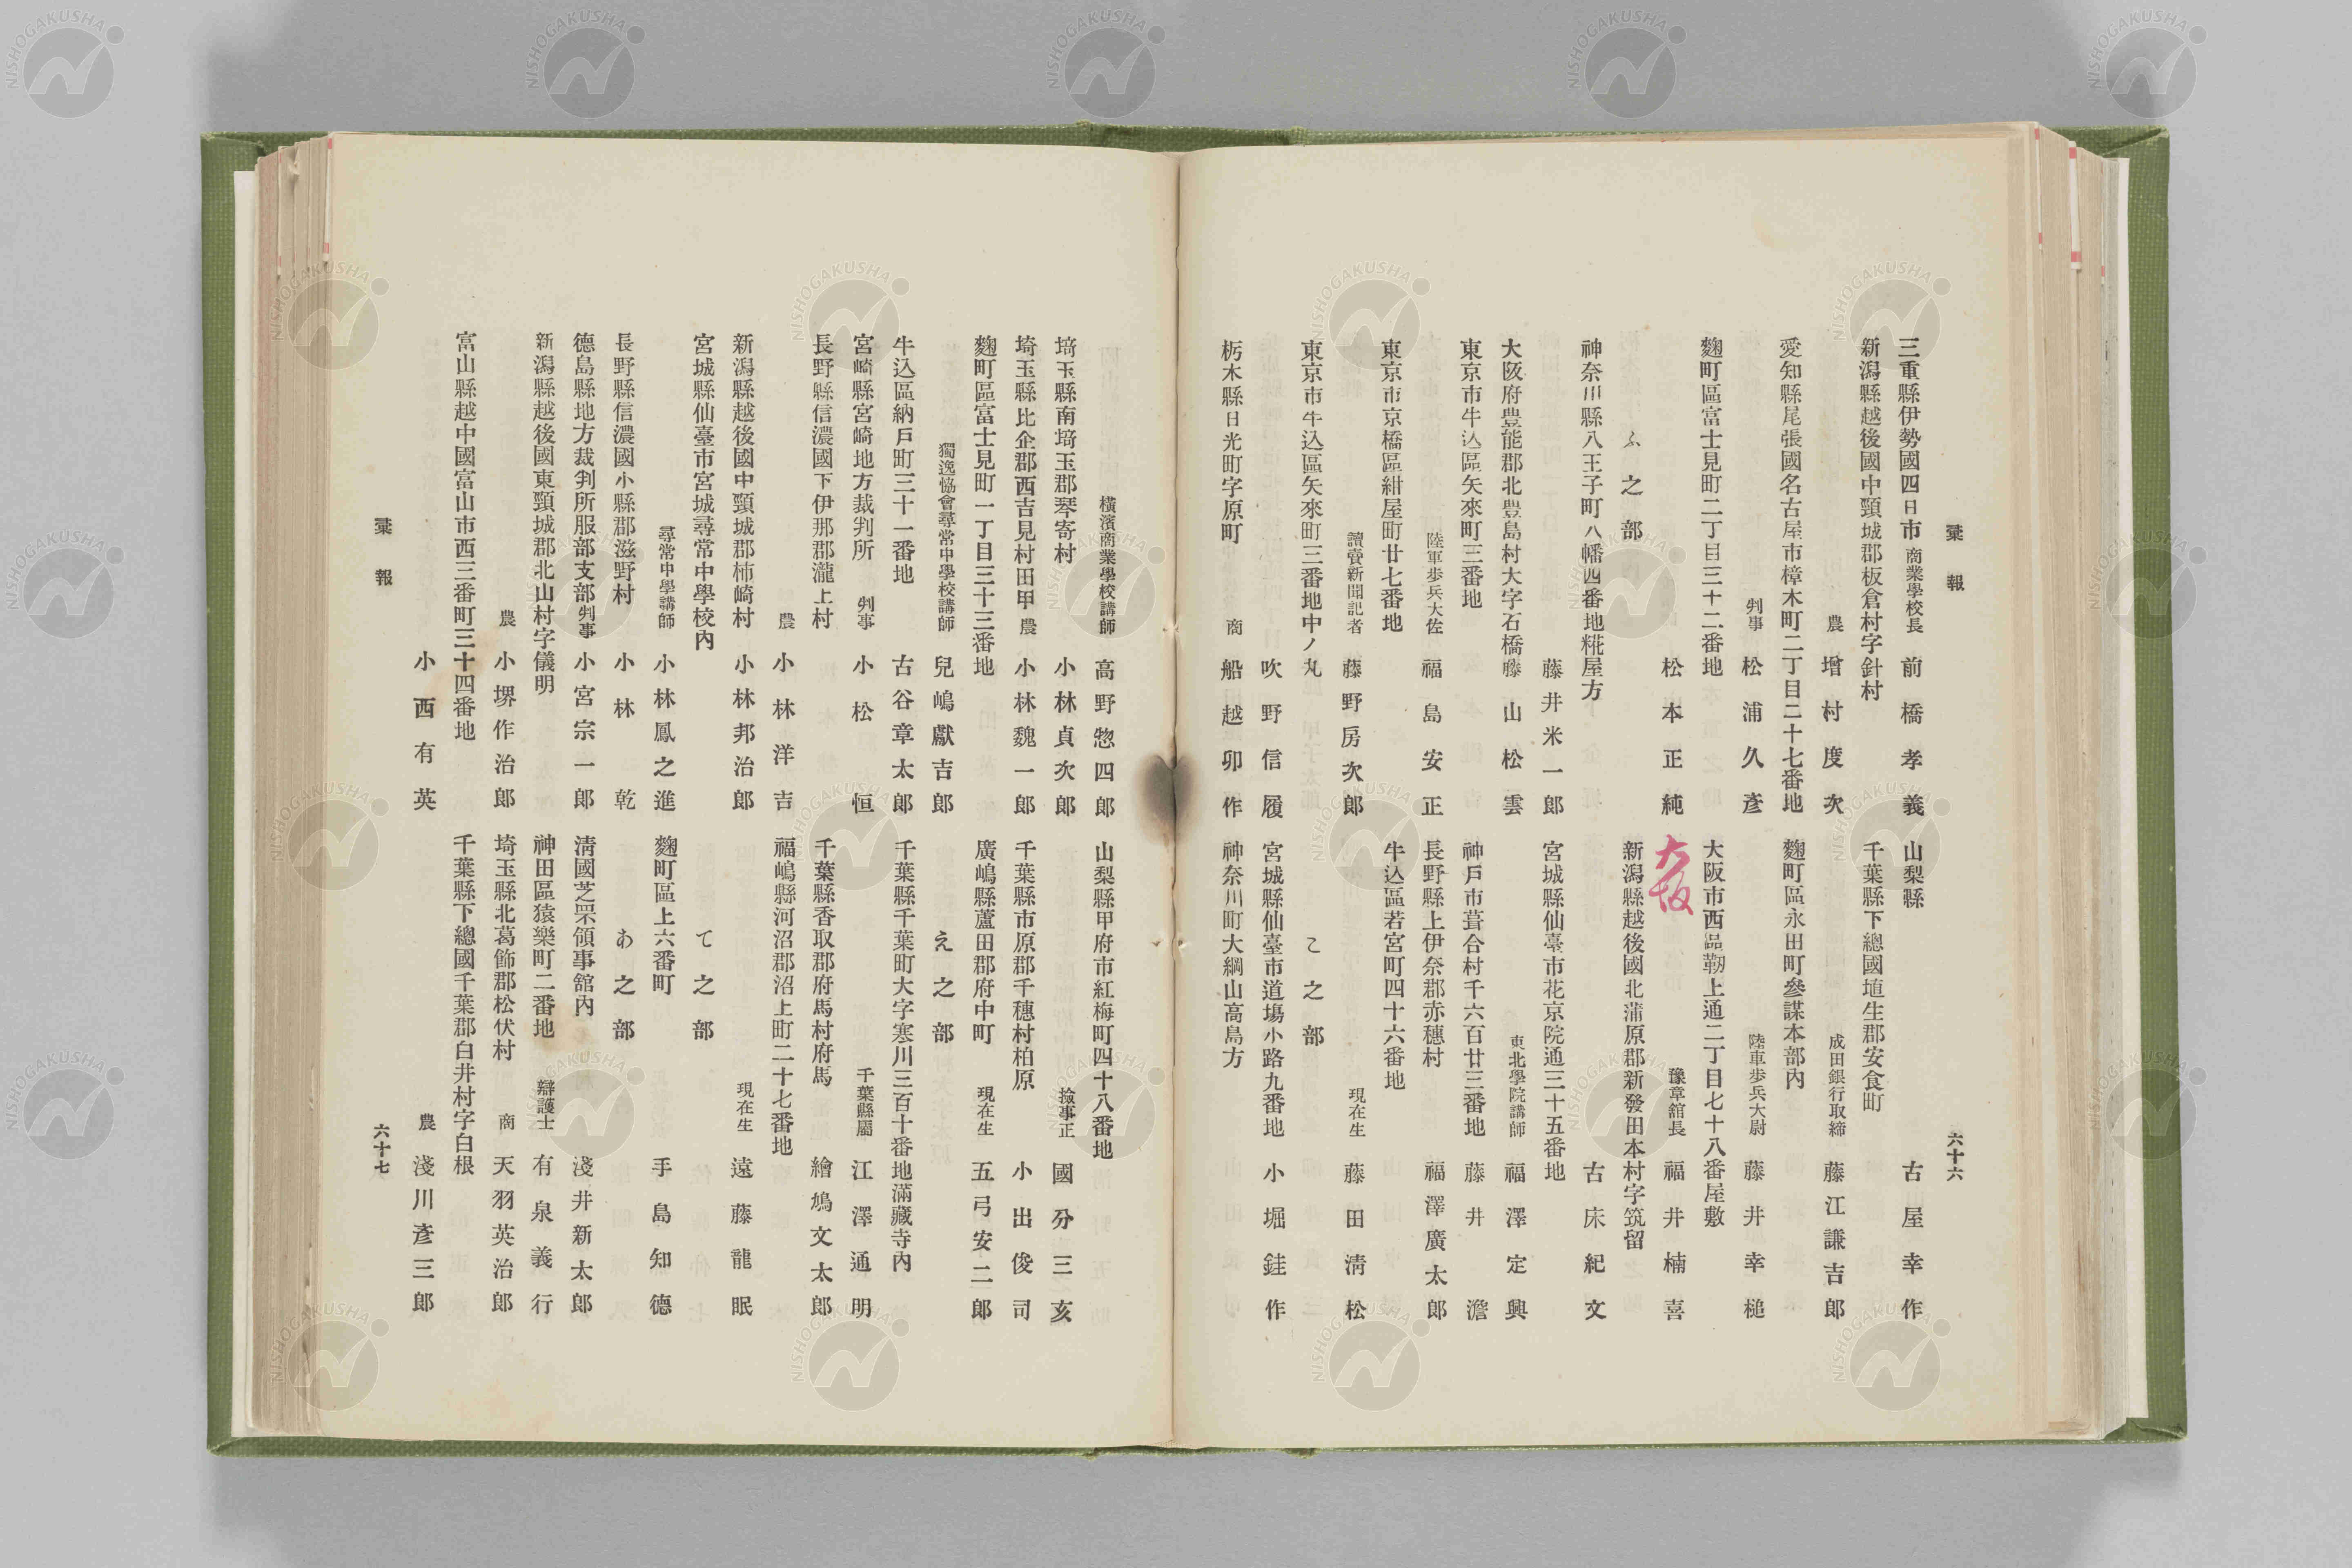 彙報
三重縣伊勢國四日市 商業學校長 前橋孝義
新潟縣越後國中頸城郡板倉村字針村
農 增村度次
愛知縣尾張國名古屋市樟木町二丁目二十七番地
判事 松浦久彥
麴町區富士見町二丁目三十二番地
松本正純
ふ之部
神奈川縣八王子町八幡四番地糀屋方
藤井米一郎
大阪府豊能郡北豊島村大字石橋 藤山松雲
東京市牛込區矢來町三番地
陸軍歩兵大佐 福島安正
東京市京橋區紺屋町廿七番地
讀賣新聞記者 藤野房次郎
東京市牛込區矢來町三番地中ノ丸
吹野信履
栃木縣日光町字原町 商 船越卯作
山梨縣 古屋幸作
千葉縣下總國埴生郡安食町
成田銀行取締 藤江謙吉郎
麴町區永田町參謀本部內
陸軍歩兵大尉 藤井幸槌
大阪市西區靱上通二丁目七十八番屋敷
大坂
豫章舘長 福井楠喜
新潟縣越後國北蒲原郡新發田本村字筑留
古床紀文
宮城縣仙臺市花京院通三十五番地
東北學院講師 福澤定興
神戶市葺合村千六百廿三番地 藤井澹
長野縣上伊奈郡赤穗村 福澤廣太郎
牛込區若宮町四十六番地
現在生 藤田淸松
こ之部
宮城縣仙臺市道塲小路九番地 小堀銈作
神奈川町大綱山高島方
六十六
橫濱商業學校講師 高野惣四郎
埼玉縣南埼玉郡琴寄村 小林貞次郎
埼玉縣比企郡西吉見村田甲 農 小林魏一郎
麴町區富士見町一丁目三十三番地
獨逸協會尋常中學校講師 兒嶋獻吉郎
牛込區納戶町三十一番地 古谷章太郎
宮崎縣宮崎地方裁判所 判事 小松恒
長野縣信濃國下伊那郡瀧上村
農 小林洋吉
新潟縣越後國中頸城郡柿崎村 小林邦治郎
宮城縣仙臺市宮城尋常中學校內
尋常中學講師 小林鳳之進
長野縣信濃國小縣郡滋野村 小林乾
德島縣地方裁判所服部支部 判事 小宮宗一郎
新潟縣越後國東頸城郡北山村字儀明
農 小堺作治郎
富山縣越中國富山市西三番町三十四番地
小西有英
山梨縣甲府市紅梅町四十八番地
撿事正 國分三亥
千葉縣市原郡千穗村柏原 小出俊司
廣嶋縣蘆田郡府中町 現在生 五弓安二郎
え之部
千葉縣千葉町大字寒川三百十番地滿藏寺內
千葉縣屬 江澤通明
千葉縣香取郡府馬村府馬 繪鳩文太郎
福嶋縣河沼郡沼上町二十七番地
現在生 遠藤龍眠
て之部
麴町區上六番町 手島知德
あ之部
淸國芝罘領事舘內 淺井新太郎
神田區猿樂町二番地 辯護士 有泉義行
埼玉縣北葛飾郡松伏村 商 天羽英治郎
千葉縣下總國千葉郡白井村字白根
農 淺川彥三郎
彙報
六十七
NISHOGAKUSHA